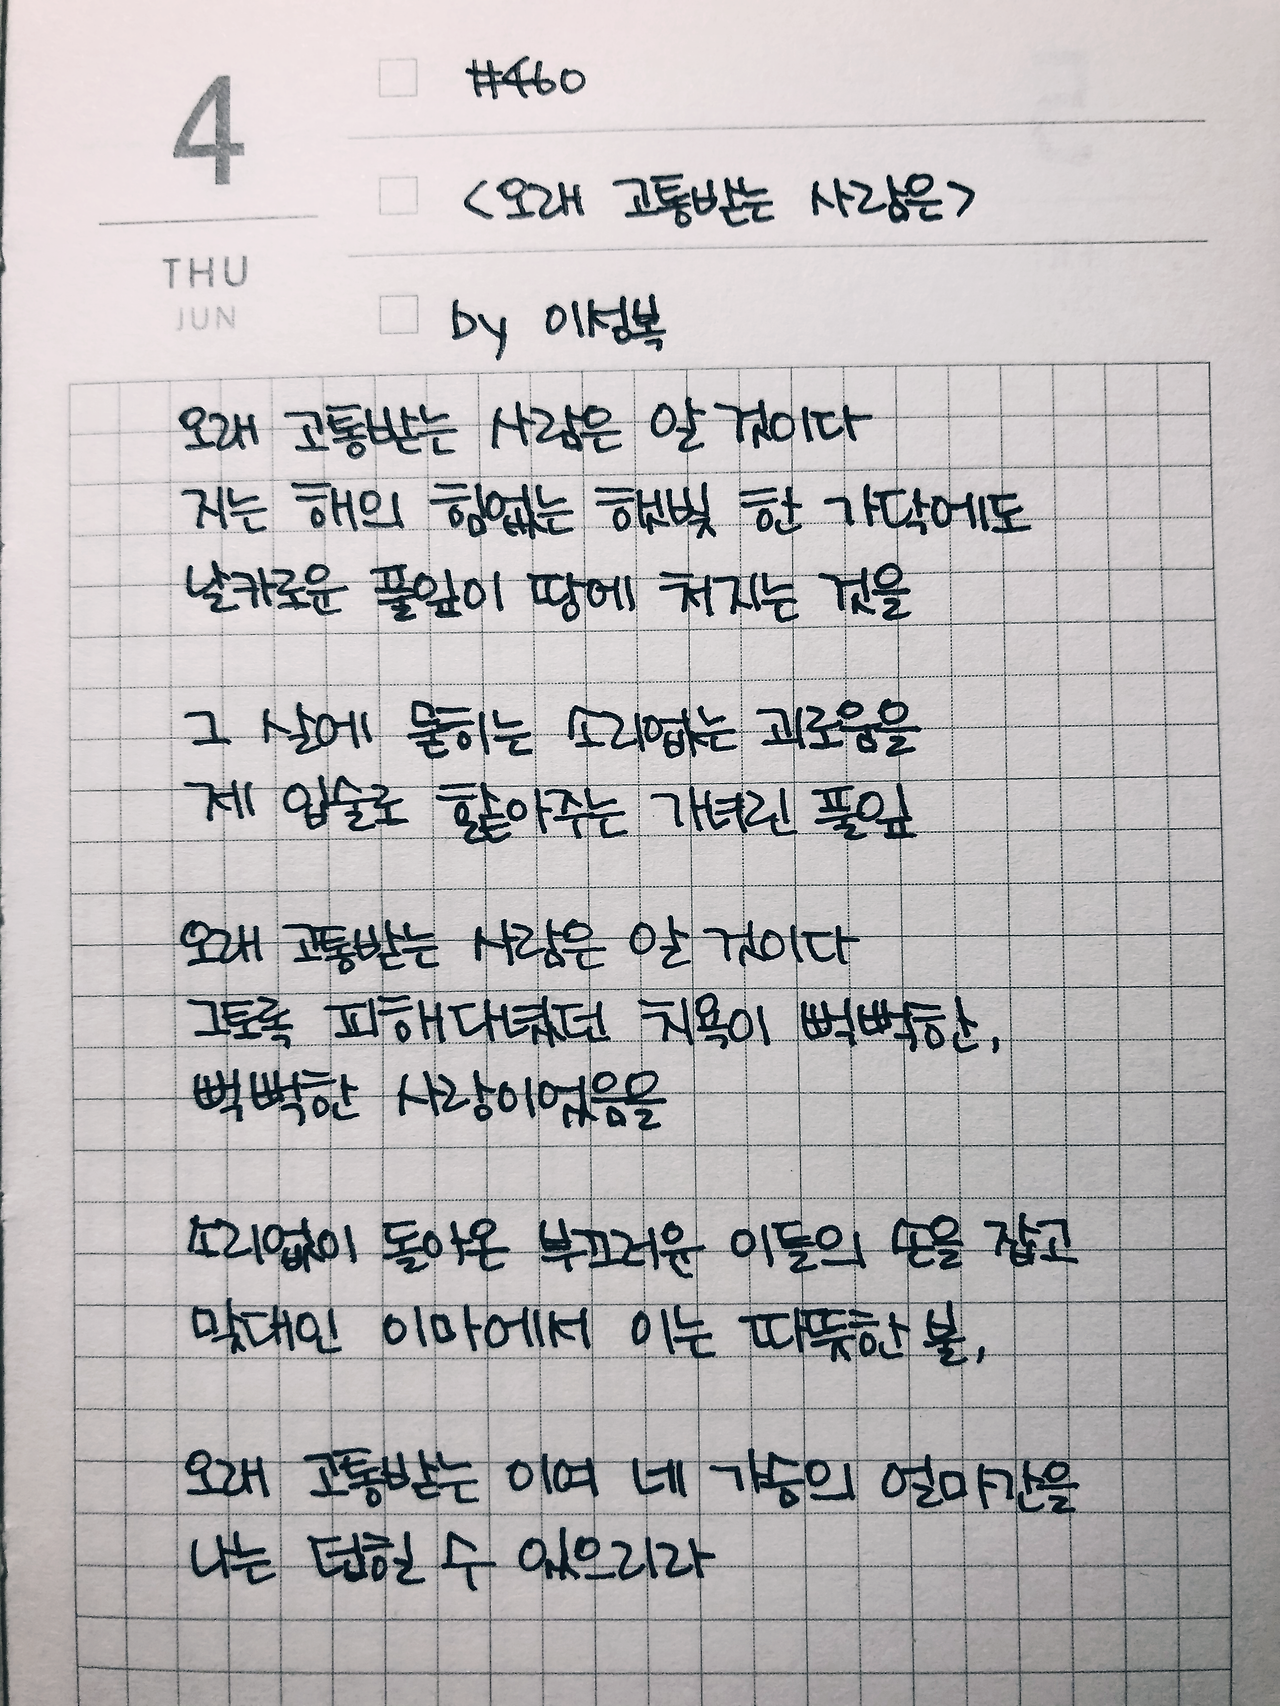 4
THU
JUN
#460
<오래 고통받는 사람은>
by 이성복
오래 고통받는 사람은 알 것이다
지는 해의 힘없는 햇빛 한 가닥에도
날카로운 풀잎이 땅에 처지는 것을
그 살에 묻히는 소리없는 괴로움을
제 입술로 핥아주는 가녀린 풀잎
오래 고통받는 사람은 알 것이다
그토록 피해다녔던 치욕이 뻑뻑한,
뻑뻑한 사랑이었음을
소리없이 돌아온 부끄러운 이들의 손을 잡고
맞대인 이마에서 이는 따뜻한 불,
오래 고통받는 이여 네 가슴의 얼마간을
나는 덥힐 수 있으리라